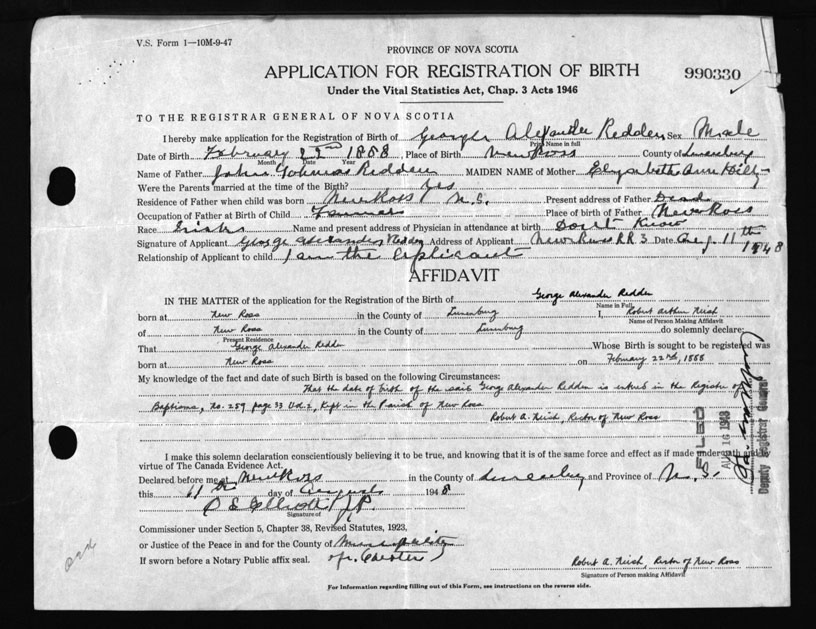 V.S. Form 1—10M-9-47
PROVINCE OF NOVA SCOTIA
APPLICATION FOR REGISTRATION OF BIRTH
990330
Under the Vital Statistics Act, Chap. 3 Acts 1946
TO THE REGISTRAR GENERAL OF NOVA SCOTIA
I hereby make application for the Registration of Birth of George Alexander Redden Sex Male
Print Name in full
Date of Birth February 22nd 1888, Place of Birth New Ross County of Lunenburg
Month Date Year
Name of Father John Thomas Redden MAIDEN NAME of Mother Elizabeth Ann
Were the Parents married at the time of the Birth? Yes
Residence of Father when child was born New Ross N.S. Present address of Father Dead
Occupation of Father at Birth of Child Farmer Place of birth of Father New Ross
Race Irish Name and present address of Physician in attendance at birth Don't Know
Signature of Applicant George Alexander Redden Address of Applicant New Ross R.R. 3 Date Aug. 11th 1948
Relationship of Applicant to child I am the Aplicant
AFFIDAVIT
IN THE MATTER of the application for the Registration of the Birth of George Alexander Redden
Name in Full
born at New Ross in the County of Lunenburg I, Robert Arthur Neish
Name of Person Making Affidavit
of New Ross in the County of Lunenburg do solemnly declare:
Present Residence
That George Alexander Redden Whose Birth is sought to be registered was
born at New Ross on February 22nd, 1888
My knowledge of the fact and date of such Birth is based on the following Circumstances:
That the date of birth of the said George Alexander Redden is entered in the Register of
Baptisms, No. 259 page 33 Vol. 2, Kept in the Parish of New Ross
Robert A. Neish, Rector of New Ross
FILED
AUG 16 1948
Deputy Registrar General
I make this solemn declaration conscientiously believing it to be true, and knowing that it is of the same force and effect as if made underoath and by
virtue of The Canada Evidence Act.
Declared before me at New Ross in the County of Lunenburg and Province of N.S.
this 11th day of August 1948
Signature of
Commissioner under Section 5, Chapter 38, Revised Statutes, 1923,
or Justice of the Peace in and for the County of Municipality
If sworn before a Notary Public affix seal. of Chester
Robert A. Neish Rector of New Ross
Signature of Person making Affidavit
For Information regarding filling out of this Form, see instructions on the reverse side.